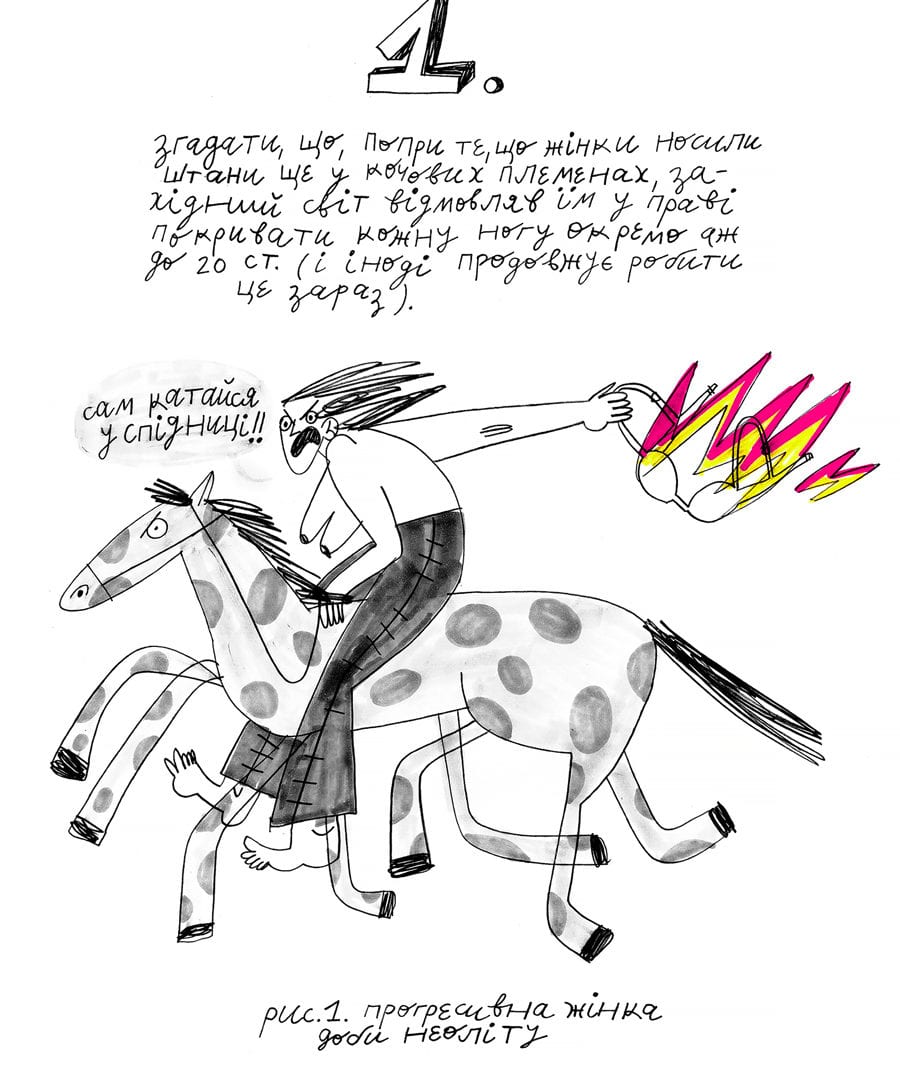 1.
згадати, що, попри те, що жінки носили
штани ще у кочових племенах, за-
хідний світ відмовляв їм у праві
покривати кожну ногу окремо аж
до 20 ст. (і іноді продовжує робити
це зараз).
сам катайся
у спідниці!!
рис.1. прогресивна жінка
доби неоліту